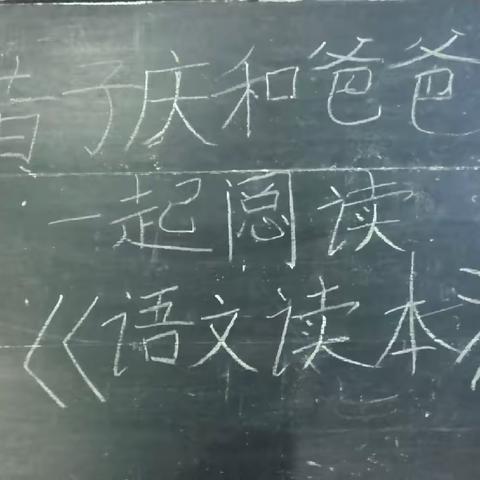 子庆和爸爸
一起阅读
《语文读本》